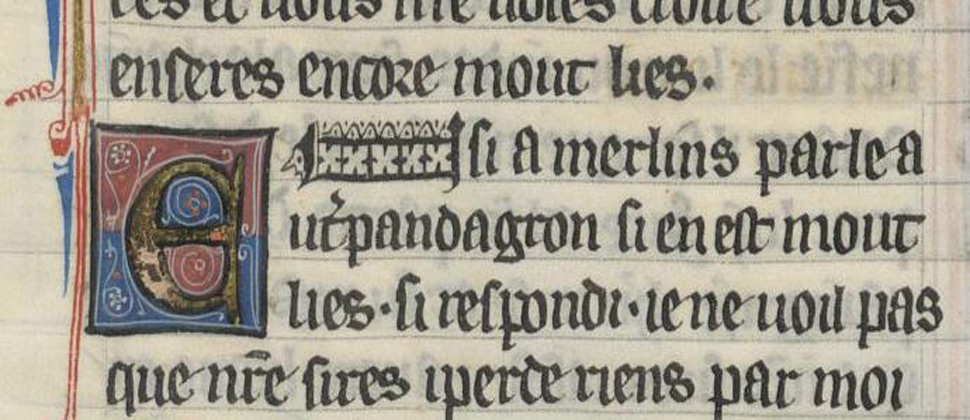 res et uous me uoles croire uous
enseres encore mout lies.
E Insi a merlins parle a
ut͛pandagron si en est mout
lies· si respondi· ie ne uoil pas
que nr̄e sires i perde riens par moi